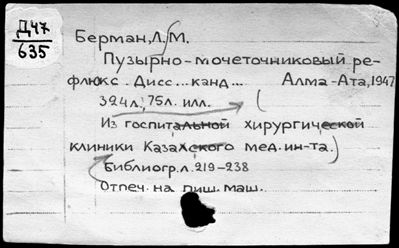 Д47
635
Берман, Л. М.
Пузырно-мочеточниковый ре-
флюкс. Дисс... канд... Алма-Ата, 1947
324 л; 75 л. илл. (
Из госпитальной хирургической
клиники Казахского мед. ин-та.)
Библиогр. л. 219-238
Отпеч. на пиш. маш.